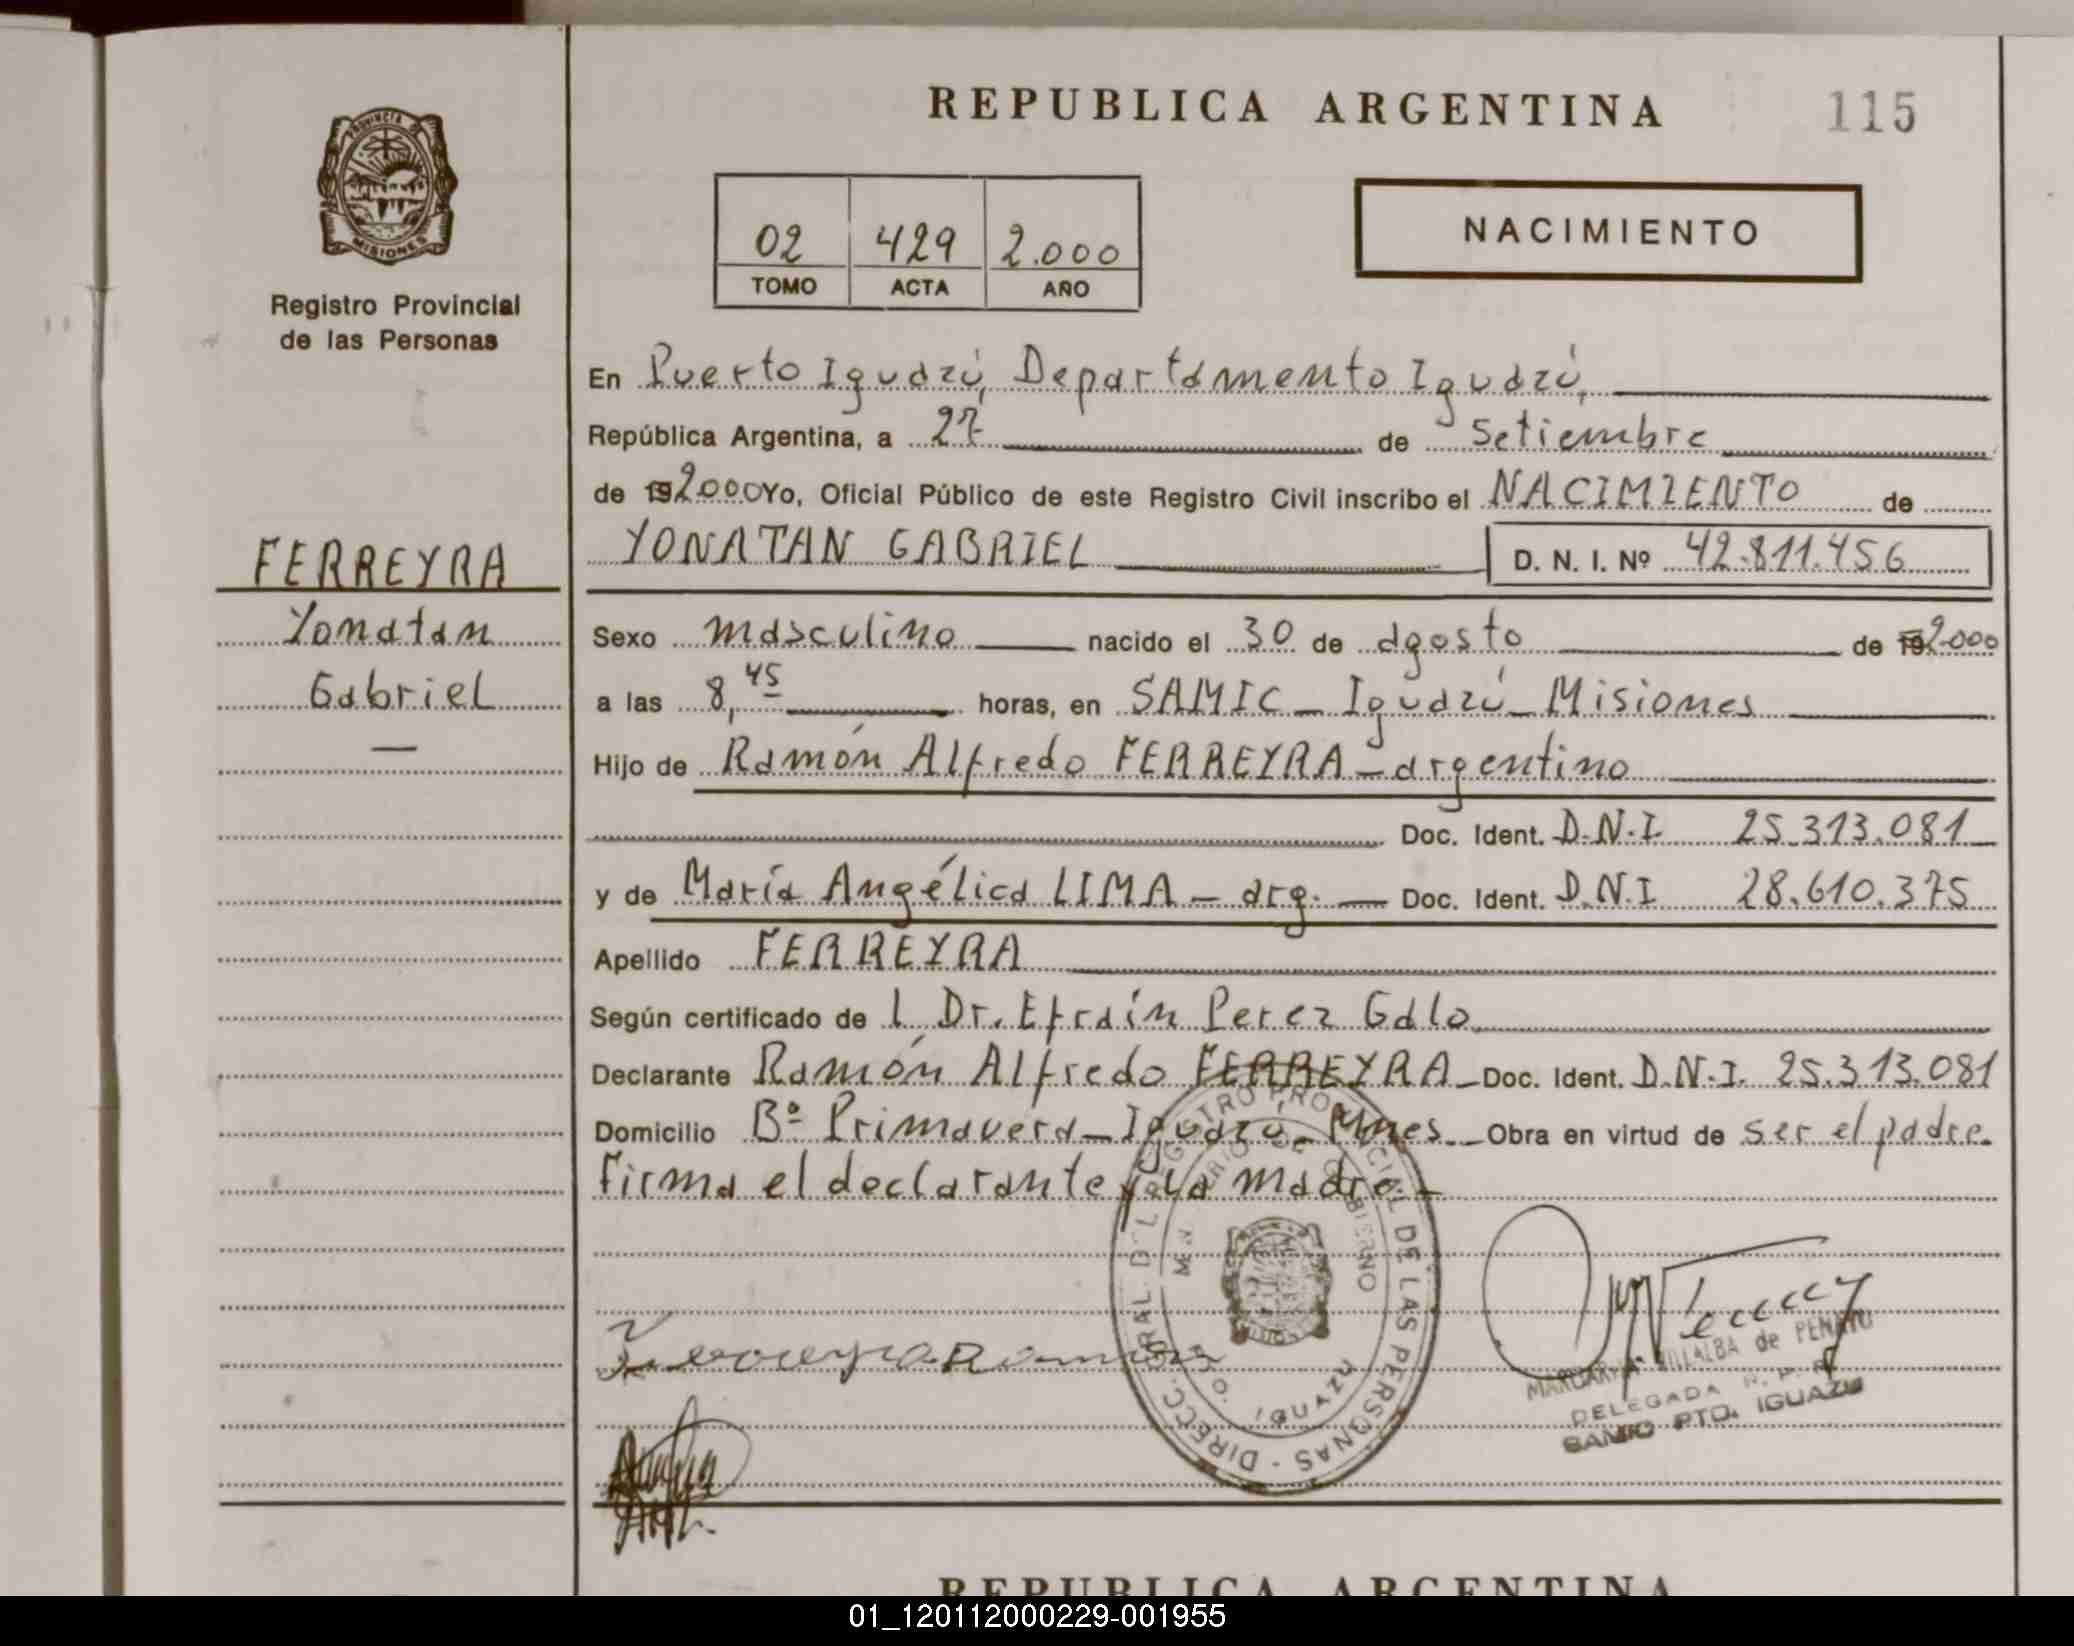 REPUBLICA ARGENTINA
115
PROVINCIA DE
MISIONES
Registro Provincial
de las Personas
02 429 2.000
TOMO ACTA AÑO
NACIMIENTO
En Puerto Iguazú, Departamento Iguazú,
República Argentina, a 27 de Setiembre
de 192000 Yo, Oficial Público de este Registro Civil inscribo el NACIMIENTO de
YONATAN GABRIEL D. N. I. Nº 42.811.456
FERREYRA
Yonatan
Gabriel
Sexo masculino nacido el 30 de agosto de 192000
a las 8,45 horas, en SAMIC - Iguazú - Misiones
Hijo de Ramón Alfredo FERREYRA - argentino
Doc. Ident. D.N.I 25.313.081
y de María Angélica LIMA - arg. - Doc. Ident. D.N.I 28.610.375
Apellido FERREYRA
Según certificado de l Dr. Efraín Perez Galo
Declarante Ramón Alfredo FERREYRA - Doc. Ident. D.N.I. 25.313.081
Domicilio Bº Primavera - Iguazú - Mnes. - Obra en virtud de ser el padre.
Firma el declarante y la madre. -
DIRECC. GRAL. DEL REGISTRO PROVINCIAL DE LAS PERSONAS -
GOBIERNO
IGUAZU
Ferreyra Ramon
MARGARITA VILLALBA de PENAYO
DELEGADA R. P. P.
SAMIC PTO. IGUAZU
REPUBLICA ARGENTINA
01_120112000229-001955